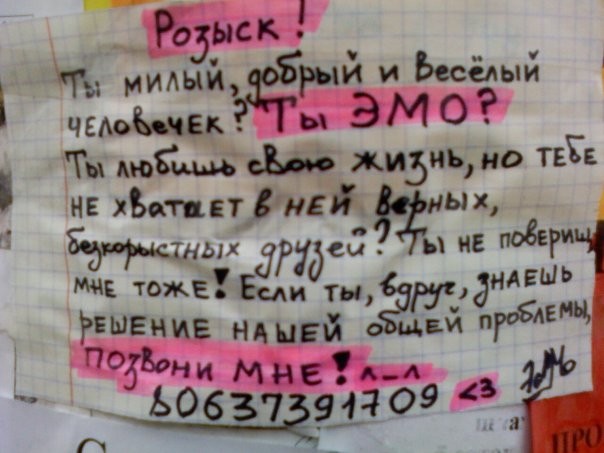 Розыск!
Ты милый, добрый и весёлый
человечек? Ты ЭМО?
Ты любишь свою жизнь, но тебе
не хватает в ней верных,
безкорыстных друзей? Ты не повериш,
мне тоже! Если ты, вдруг, знаешь
решение нашей общей проблемы,
позвони мне! ^_^
80637391709 <3
ПРО